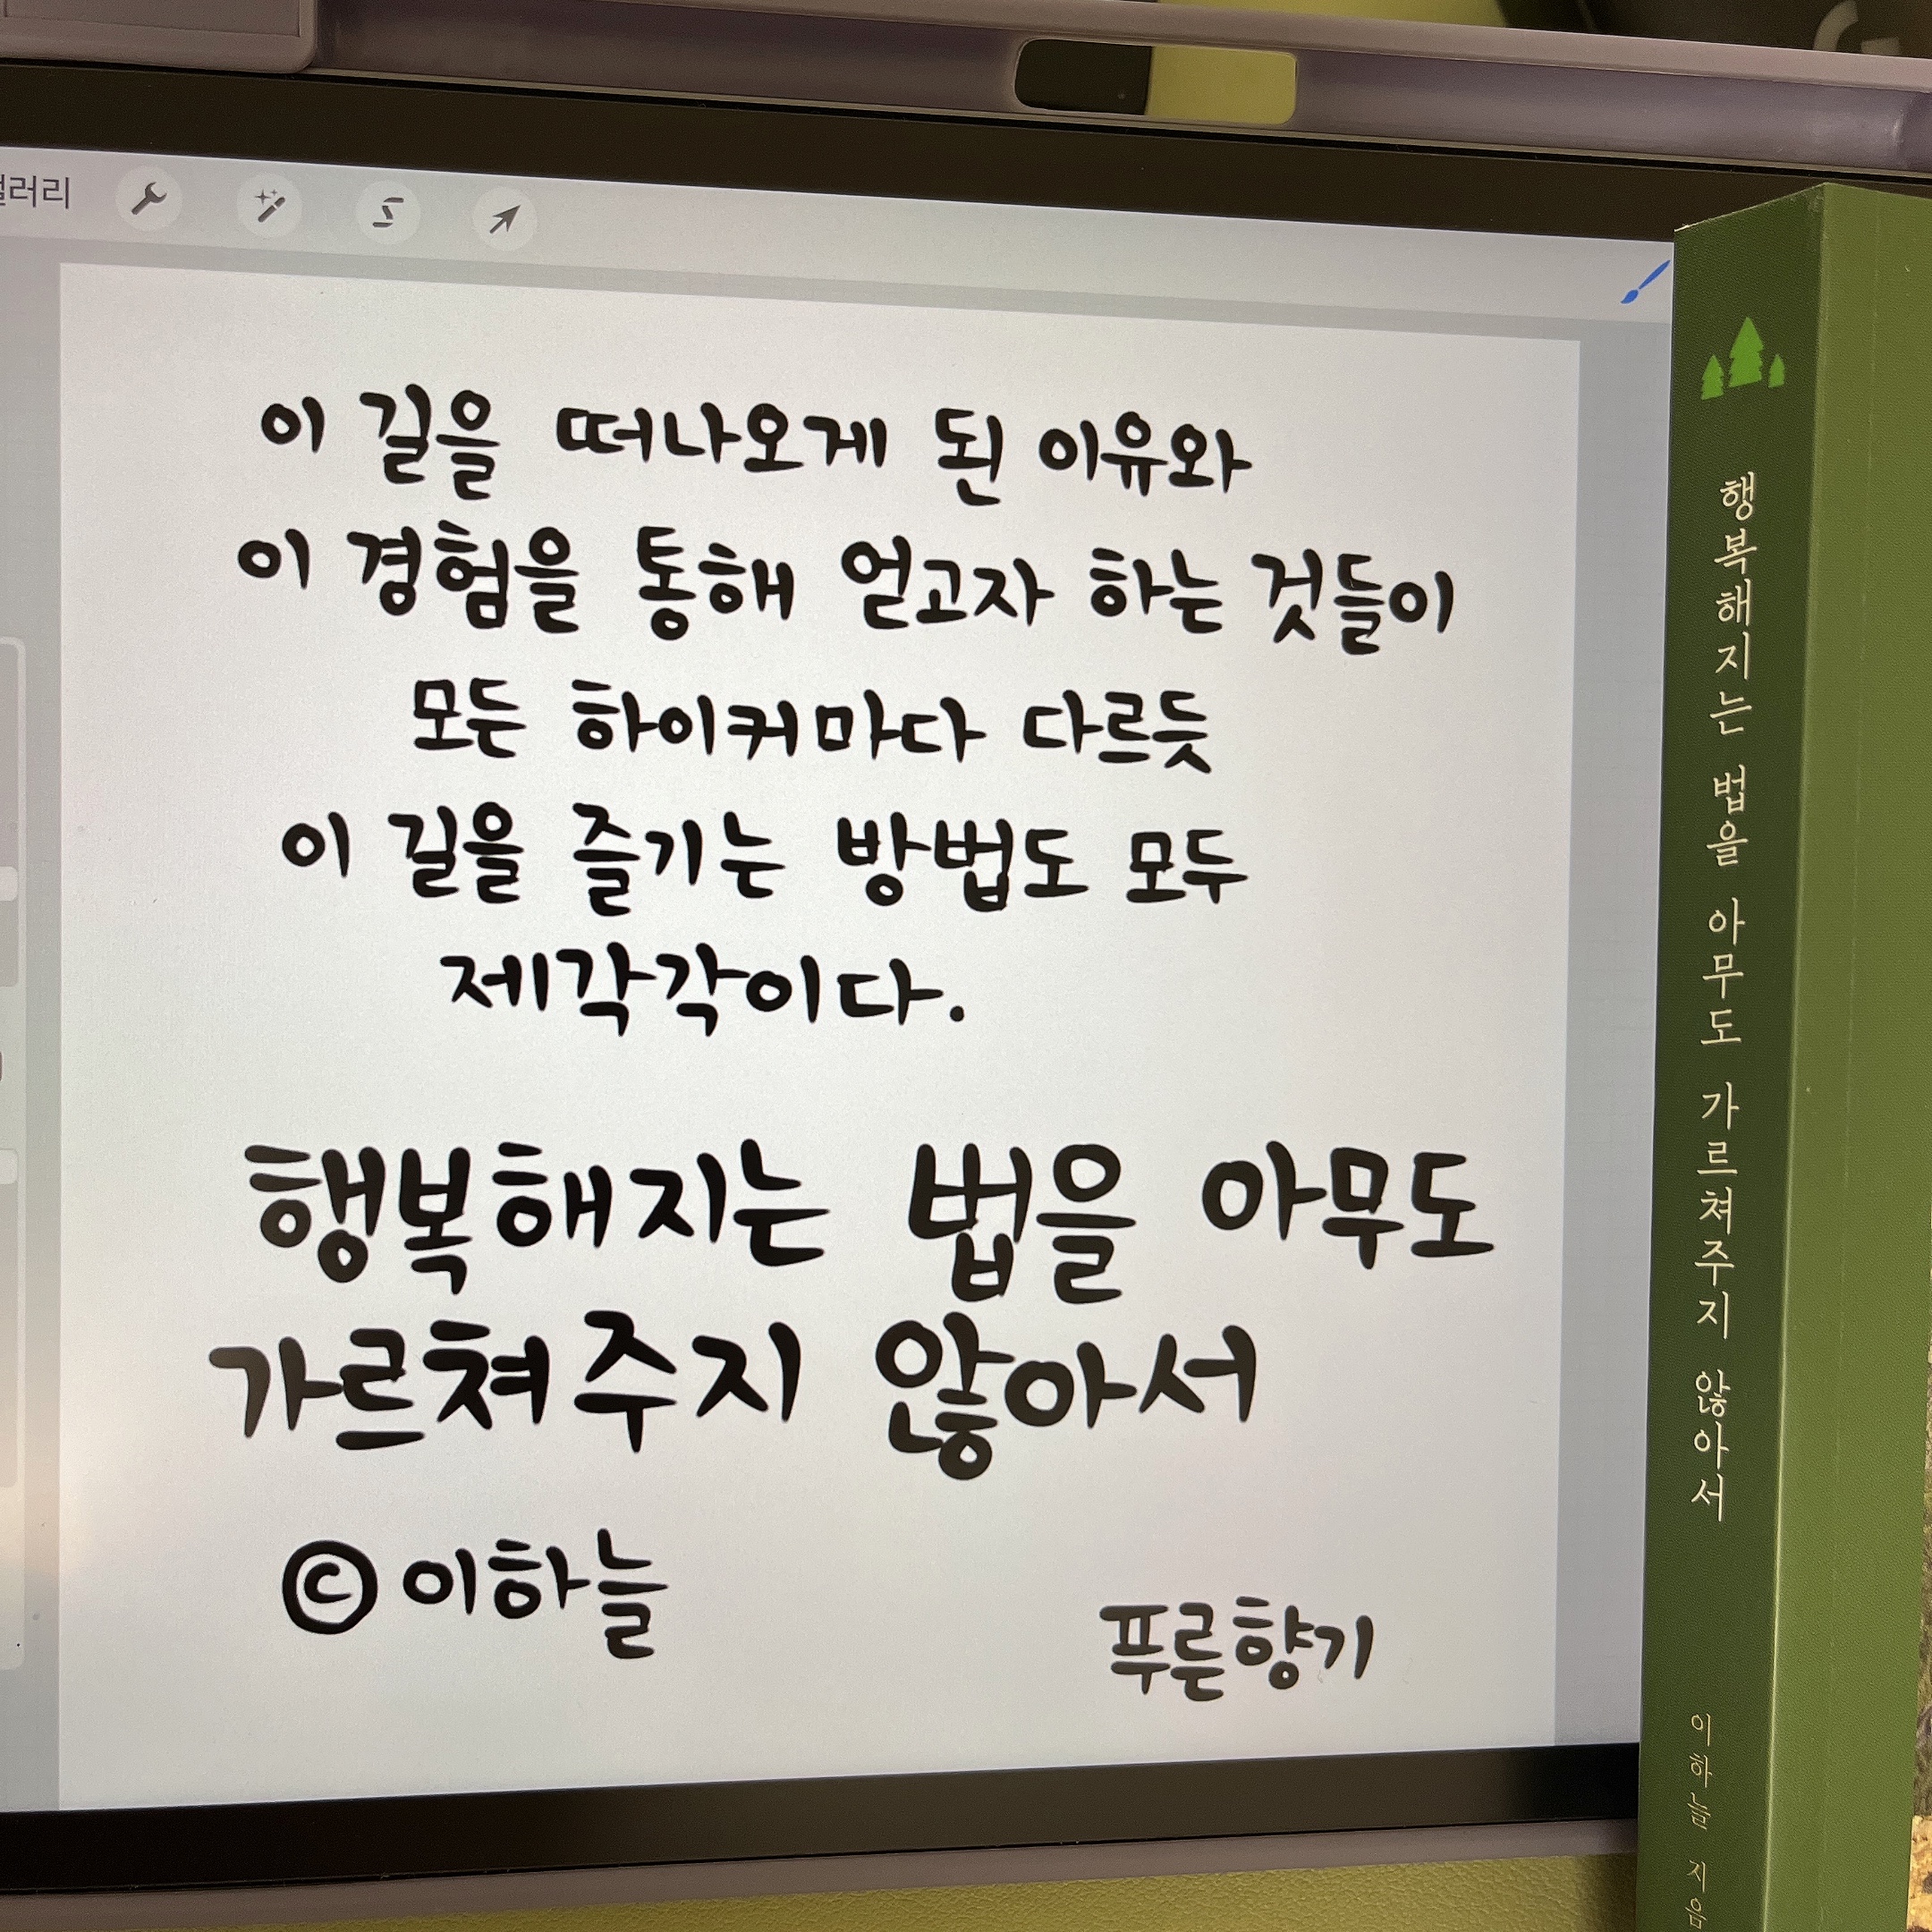 이 길을 떠나오게 된 이유와
이 경험을 통해 얻고자 하는 것들이
모든 하이커마다 다르듯
이 길을 즐기는 방법도 모두
제각각이다.
행복해지는 법을 아무도
가르쳐주지 않아서
© 이하늘
푸른향기
행복해지는 법을 아무도 가르쳐주지 않아서
이하늘 지음